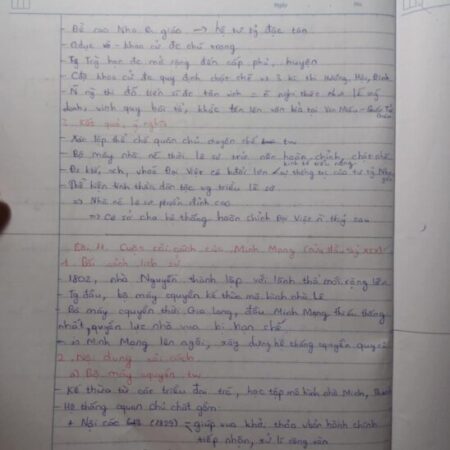 Ngày No.
- Đề cao Nho giáo → hệ tư tg độc tôn
- Gdục và khoa cử đc chú trọng
- Tg Tg học đc mở rộng đến cấp phủ, huyện
- Cđộ khoa cử đc quy định chặt chẽ với 3 kì thi Hương, Hội, Đình
- N ng thi đỗ tiến sĩ đc tôn vinh = n nghi thức như lễ xg
danh, vinh quy bái tổ, khắc tên lên văn bia tại Văn Miếu - Quốc Tử
Giám
3. Kết quả, ý nghĩa
- Xác lập thể chế quân chủ chuyên chế tw
- Bộ máy nhà nc thời Lê sơ trở nên hoàn chỉnh, chặt chẽ
- Đ kt, xh, vhoá Đại Việt có bước lớn
- Thể hiện tinh thần dân tộc vg triều Lê sơ
⇒ Nhà nc Lê sơ phdỉnh cao
⇒ Cơ sở cho hệ thống hành chính Đại Việt n tkỷ sau
Bài 11. Cuộc cải cách của Minh Mạng (nửa đầu tkỷ XIX)
1. Bối cảnh lịch sử
- 1802, nhà Nguyễn thành lập với lãnh thổ mở rộng lớn
- Tg đầu, bộ máy cquyền kế thừa mô hình nhà Lê
- Bộ máy cquyền thời Gia Long, đầu Minh Mạng thiếu thống
nhất, quyền lực nhà vua bị hạn chế
- ⇒ Minh Mạng lên ngôi, xây dựng hệ thống cquyền quy củ
2. Nội dung cải cách
a) Bộ máy cquyền tw
- Kế thừa từ các triều đại trc, học tập mô hình nhà Minh, Thanh
- Hệ thống quan chủ chốt gồm:
+ Nội các (1829) = giúp vua khởi thảo vbản hành chính
tiếp nhận, xử lí công văn